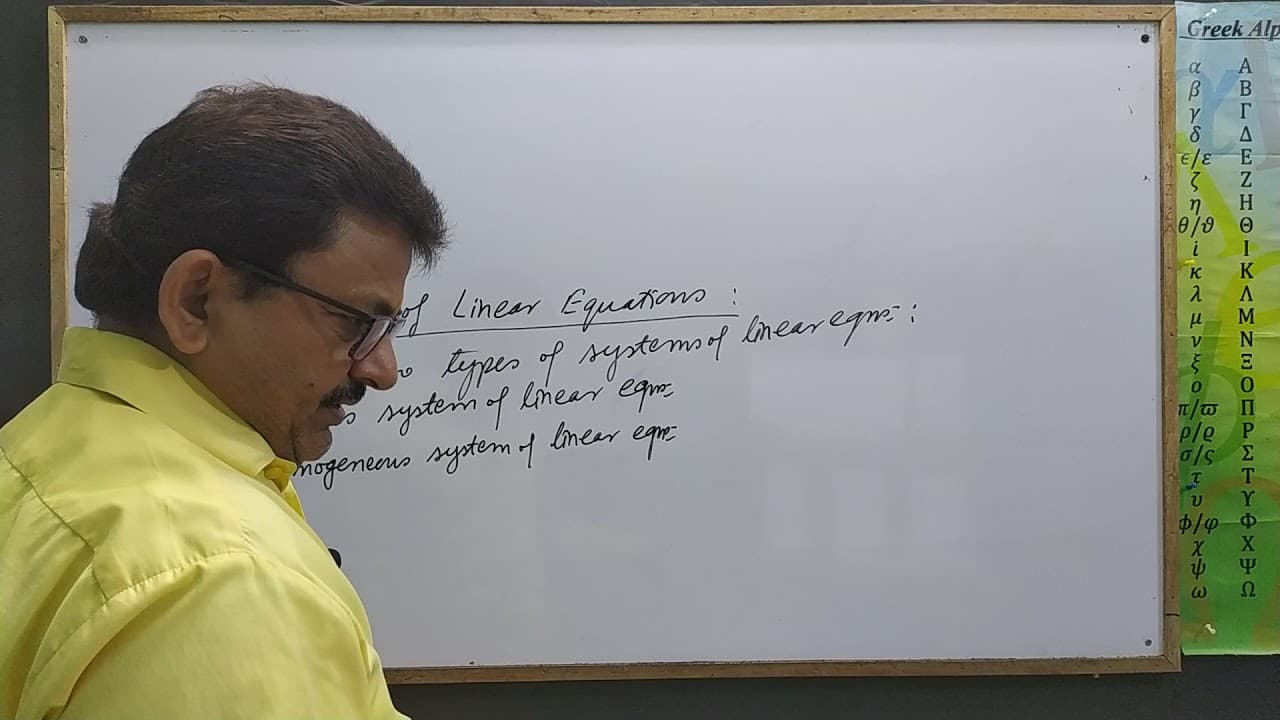 of Linear Equations :
types of systems of linear eqns :
system of linear eqns
mogeneous system of linear eqns
Greek Alp
α Α
β Β
γ Γ
δ Δ
ϵ/ε Ε
ζ Ζ
η Η
θ/ϑ Θ
i Ι
κ Κ
λ Λ
μ Μ
ν Ν
ξ Ξ
ο Ο
π/ϖ Π
ρ/ϱ Ρ
σ/ς Σ
τ Τ
υ Υ
ϕ/φ Φ
χ Χ
ψ Ψ
ω Ω